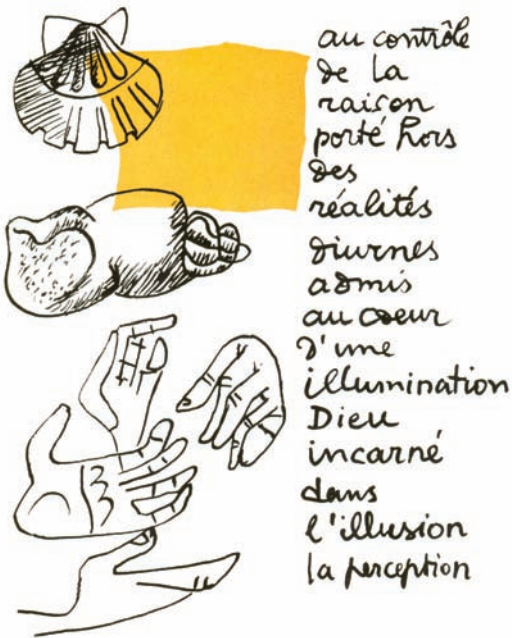 au contrôle
de la
raison
porté hors
des
réalités
diurnes
admis
au coeur
d'une
illumination
Dieu
incarné
dans
l'illusion
la perception